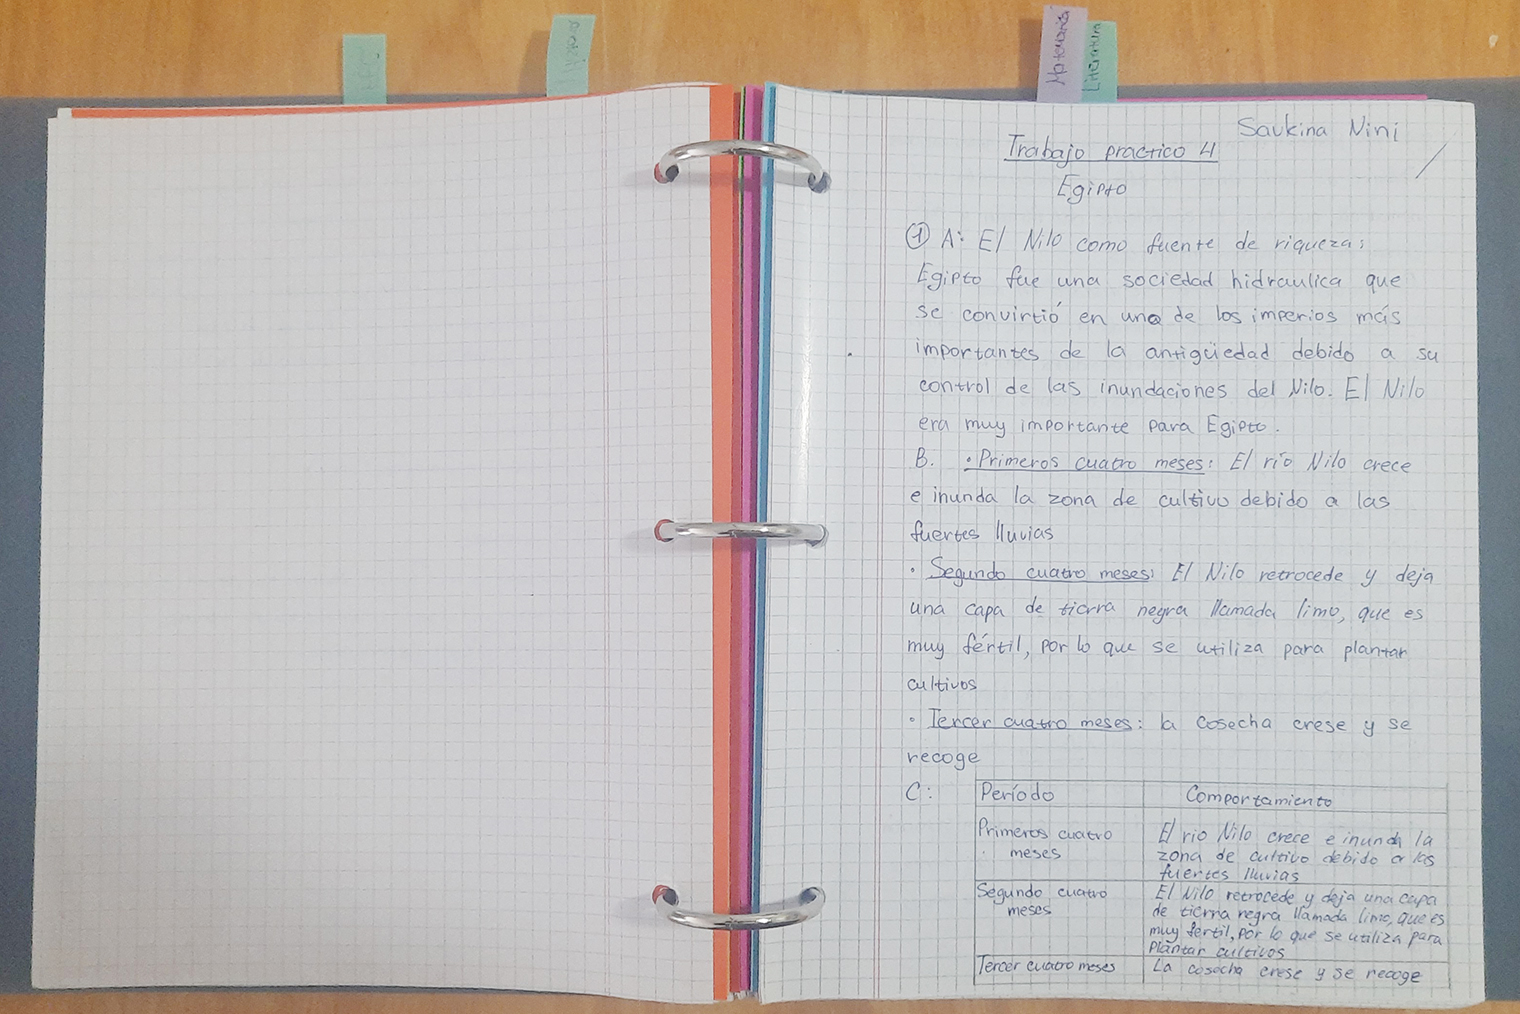 Matematica
Literatura
Savkina Nini
Trabajo practico 4
Egipto
① A: El Nilo como fuente de riqueza:
Egipto fue una sociedad hidraulica que
se convirtió en uno de los imperios más
importantes de la antigüedad debido a su
control de las inundaciones del Nilo. El Nilo
era muy importante para Egipto.
B. • Primeros cuatro meses: El río Nilo crece
e inunda la zona de cultivo debido a las
fuertes lluvias
• Segundo cuatro meses: El Nilo retrocede y deja
una capa de tierra negra llamada limo, que es
muy fértil, por lo que se utiliza para plantar
cultivos
• Tercer cuatro meses: la cosecha crese y se
recoge
C:
Período Comportamiento
Primeros cuatro
meses
El rio Nilo crece e inunda la
zona de cultivo debido a las
fuertes lluvias
Segundo cuatro
meses
El Nilo retrocede y deja una capa
de tierra negra llamada limo, que es
muy fértil, por lo que se utiliza para
plantar cultivos
Tercer cuatro meses La cosecha crese y se recoge